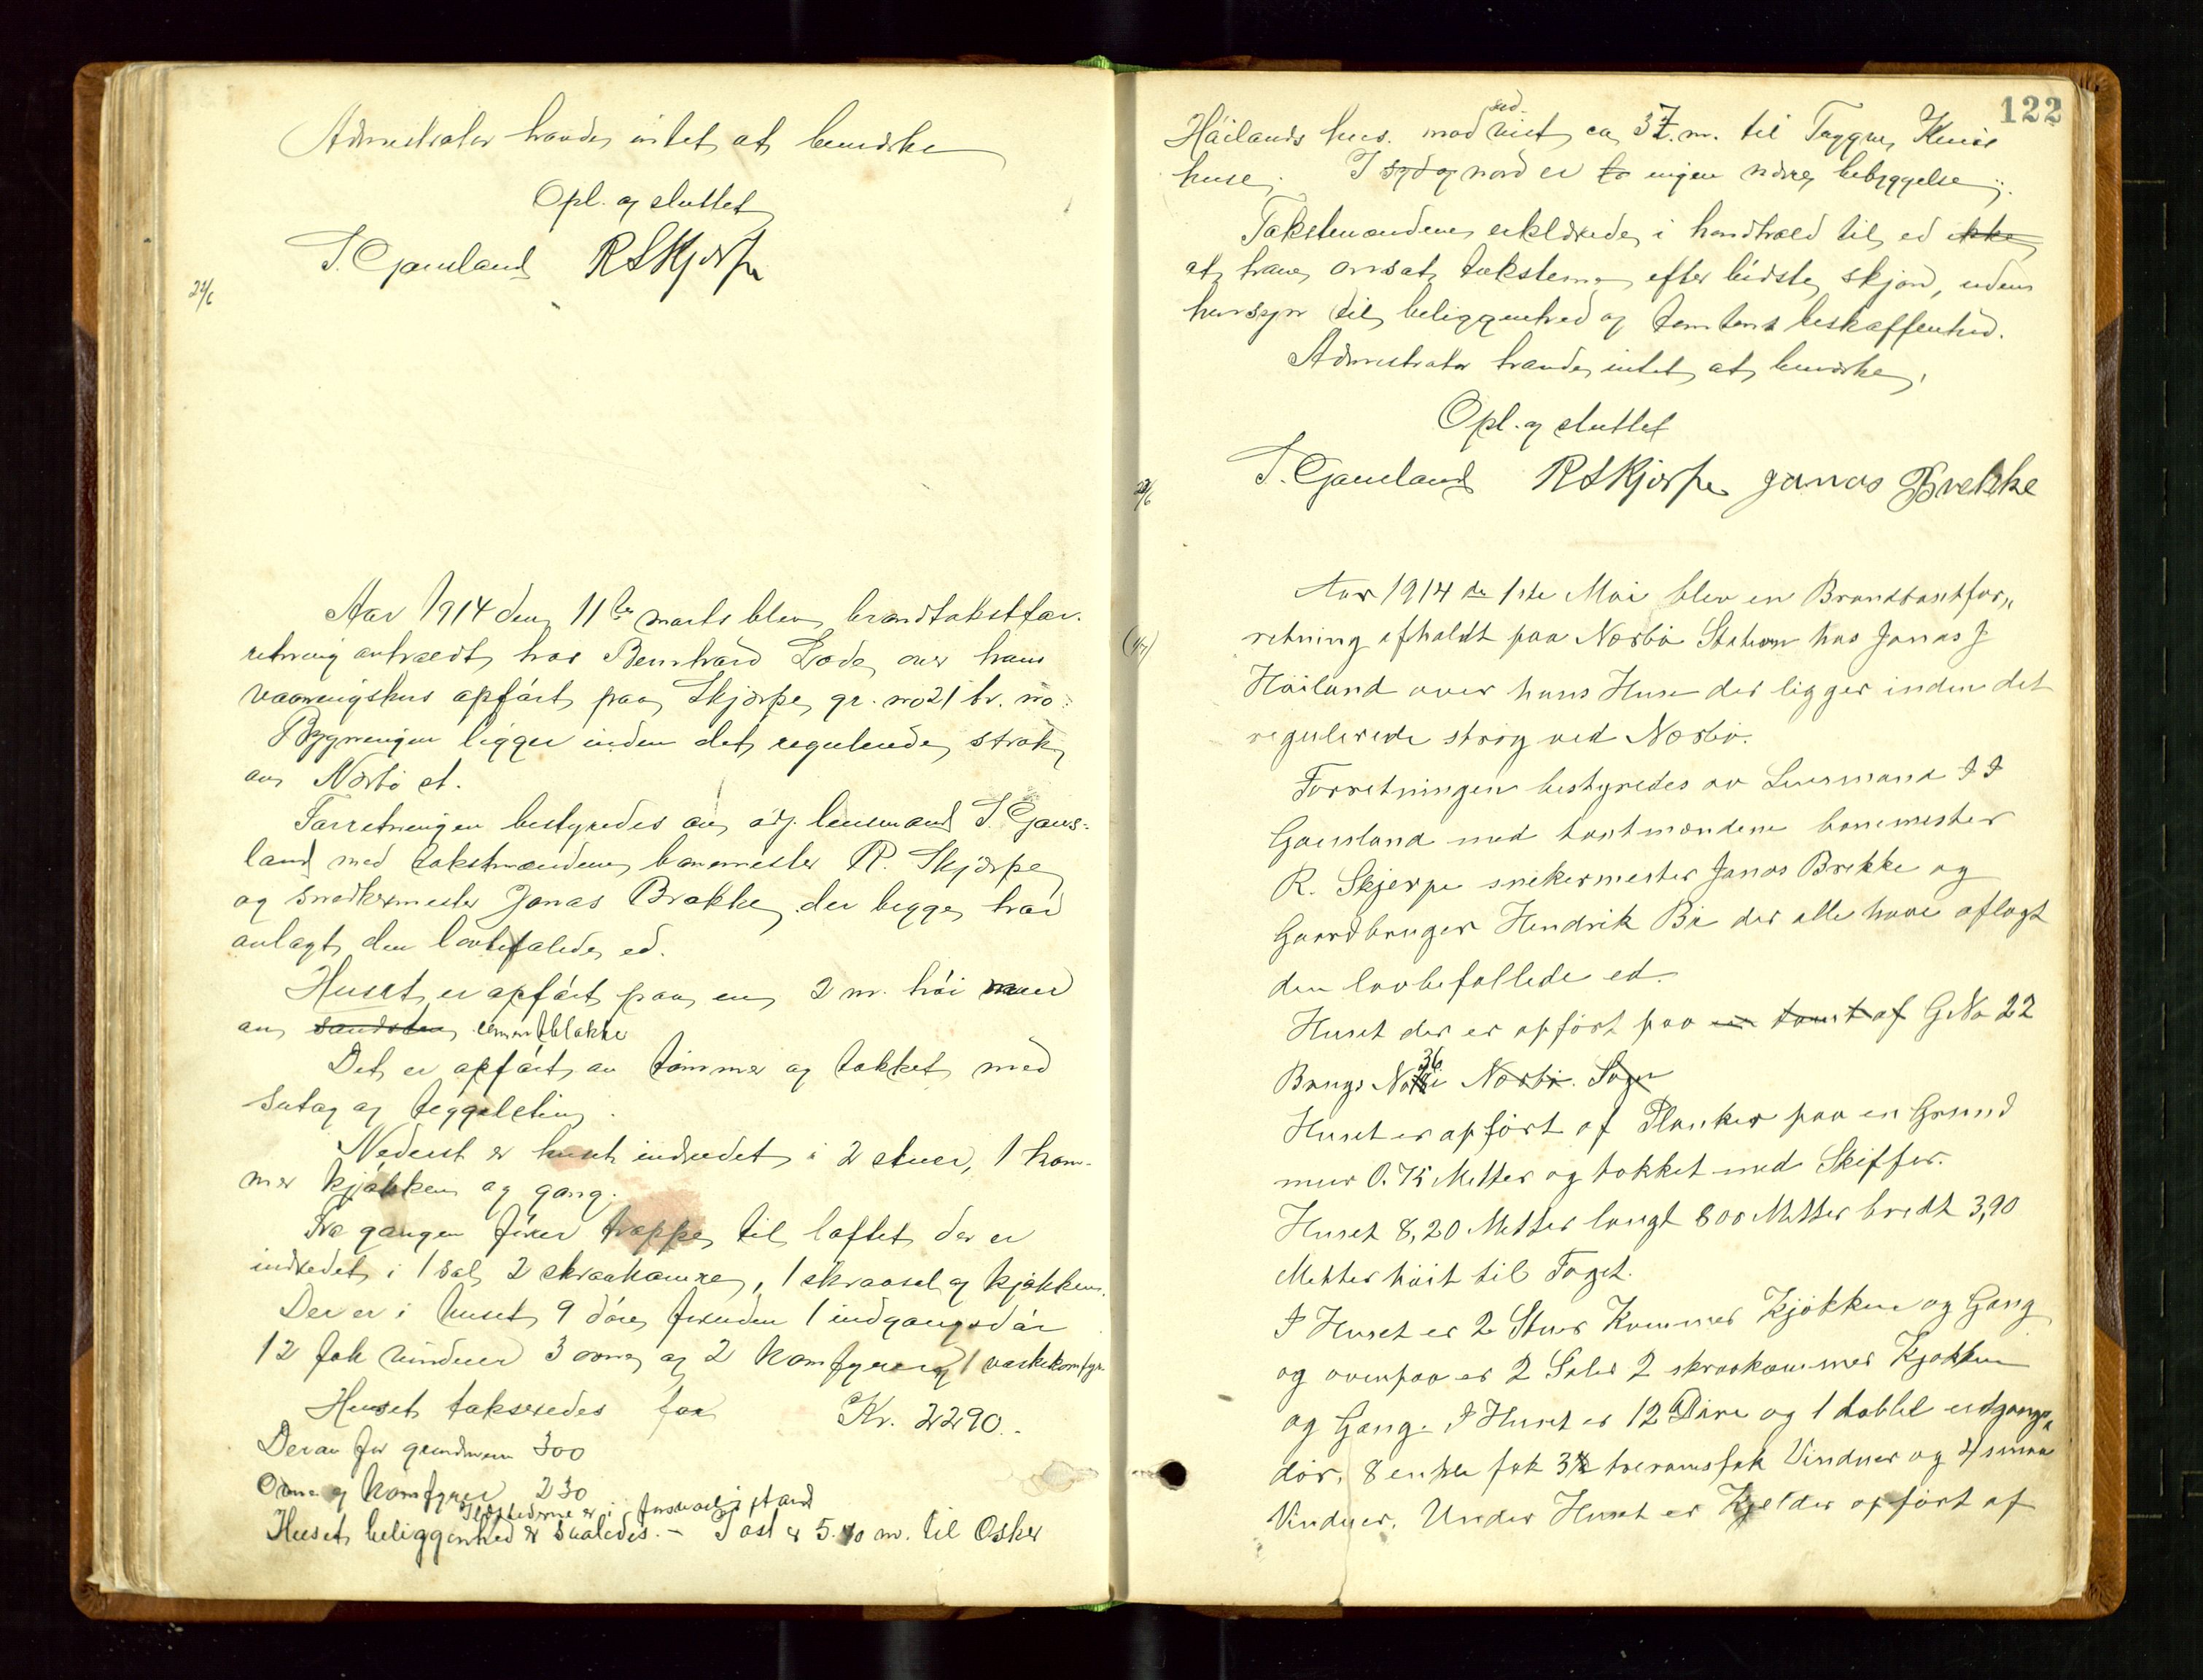 Admistrator havde intet at bemerke
Opl. og sluttet
T. Gausland RSKjærpe
22/6
Aar 1914 den 11te marts blev brandtakstfor-
retning avholdt hos Bernhard Lode over hans
vaaningshus opført paa Skjærpe gr. no 21 br. no
Bygningen ligger inden det regulerede strøk
av Nærbø st.
Forretningen bestyredes av adj. lensmand T. Gaus-
land med takstmændene banemester R. Skjærpe
og snedkermester Jonas Brekke, der begge har
avlagt den lovbefalede ed.
Huset er opført paa en 2 m. høi mur
av sandsten cementblokke
Det er opført av tømmer og tækket med
sutag og teggelsten.
Nederst er huset indredet i 2 stuer, 1 kam-
mer kjøkken og gang.
Fra gangen fører trappe til loftet der er
indredet i 1 sal, 2 skraakamre, 1 skraasal og kjøkken.
Der er i huset 9 døre foruden 1 indgangsdør
12 fak vinduer 3 ovne og 2 komfyrer og 1 vaskekomfyr.
Huset takseredes for Kr. 2290.-
Derav for grundmuren 300
Ovne og komfyrer 230
Ildstederne er i forsvarlig stand
Husets beliggenhed er saaledes. - I øst er 5.70 m. til Oskar
122
Høilands hus. mod vest ca 37. m. til Trygve Kviee
syd
huse. I syd og nord er to ingen nære bebyggelse.
Takstmændene erklærede i henhold til ed ikke
at have ansat taksterne efter bedste skjøn, uden
hensyn til beliggenhed og tomtens beskaffenhed.
Admistrator havde intet at bemerke.
Opl. og sluttet
T. Gausland RSKjærpe Jonas Brekke
22/6
Aar 1914 den 1ste Mai blev en Brandtaxtfor„
retning afholdt paa Nærbø Station hos Jonas J
Høiland over hans Huse der ligger inden det
regulerede strøg ved Nærbø.
Forretningen bestyredes av Lensmand T T
Gausland med taxtmændene banemester
R. Skjerpe snekermester Jonas Brekke og
Gaardbruger Hendrik Bø der alle have aflagt
den lovbefallede ed.
Huset der er opført paa en tomt af G No 22
Brugs No 36 i Nærbø. Sogn
Huset er opført af Planker paa en Grund
mur 0.75 Metter og tækket med Skiffer.
Huset 8,20 Metter langt 800 Metter bredt 3,90
Metter høit til Taget.
I Huset er 2 Stuer Kammer Kjøkken og Gang
og ovenpaa er 2 Saler 2 skraakammer Kjøkken
og Gang. I Huset er 12 Døre og 1 dobbel udgangs„
dør, 8 enkle fak 3 treramsfak Vinduer og 4 smaa
Vinduer. Under Huset er Kjelder opført af